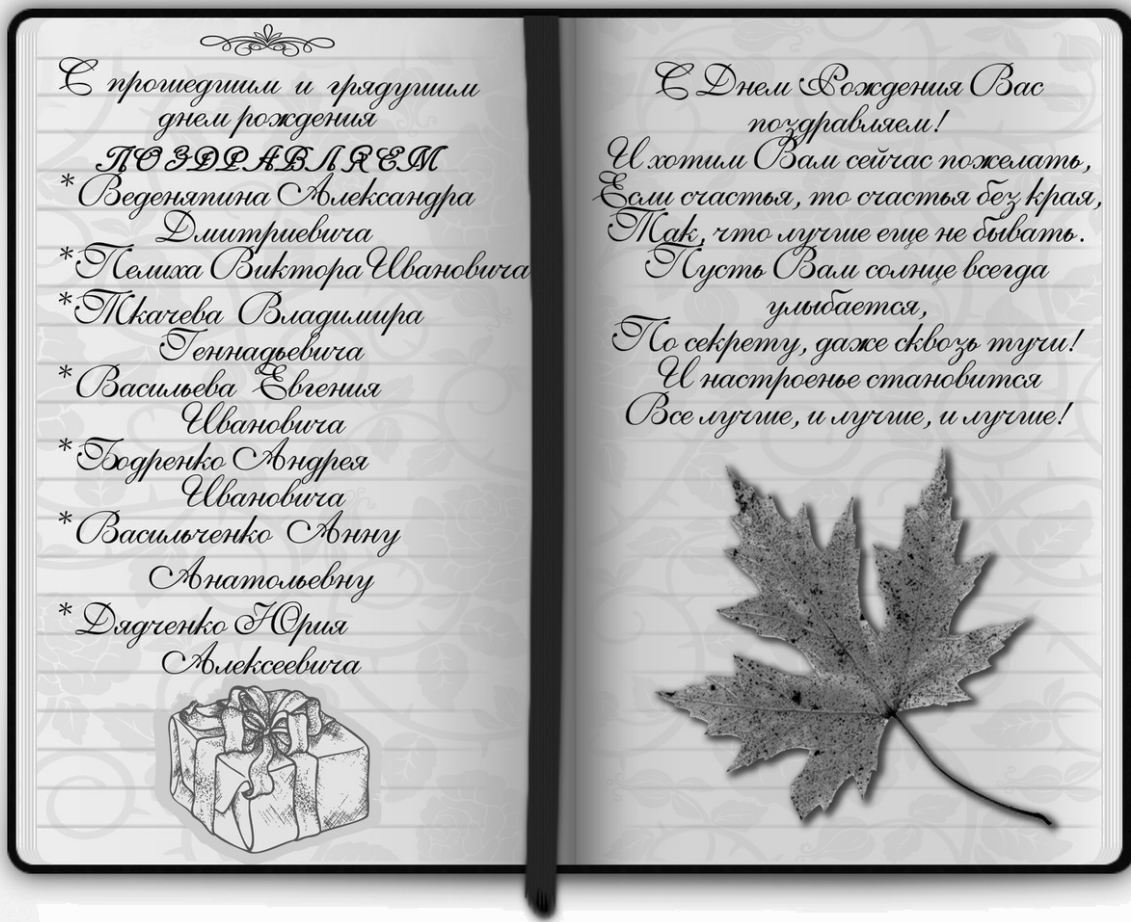 С прошедшим и грядущим
днем рождения
ПОЗДРАВЛЯЕМ
* Веденяпина Александра
Дмитриевича
* Пелиха Виктора Ивановича
* Ткачева Владимира
Геннадьевича
* Васильева Евгения
Ивановича
* Бодренко Андрея
Ивановича
* Васильченко Анну
Анатольевну
* Дядченко Юрия
Алексеевича
С Днем Рождения Вас
поздравляем!
И хотим Вам сейчас пожелать,
Если счастья, то счастья без края,
Так, что лучше еще не бывать.
Пусть Вам солнце всегда
улыбается,
По секрету, даже сквозь тучи!
И настроенье становится
Все лучше, и лучше, и лучше!